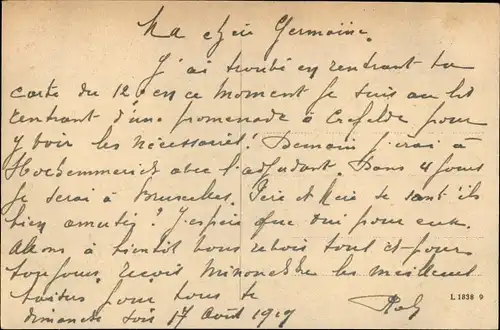 Ma chère Germaine.
J'ai trouvé en rentrant ta
carte du 12. en ce moment je suis au lit
rentrant d'une promenade à Crefelde pour
y voir les nécessaires! Demain j'irai à
Hochemmerich avec l'adjudant. Dans 4 jours
je serai à Bruxelles. Père et Mère se sont ils
bien amusés? J'espère que oui pour eux.
Allons à bientôt vous revoir tout et pour
toujours. reçois Minonche les meilleurs
baisers pour tous te
dimanche soir 17 Août 1919
L 1838 9